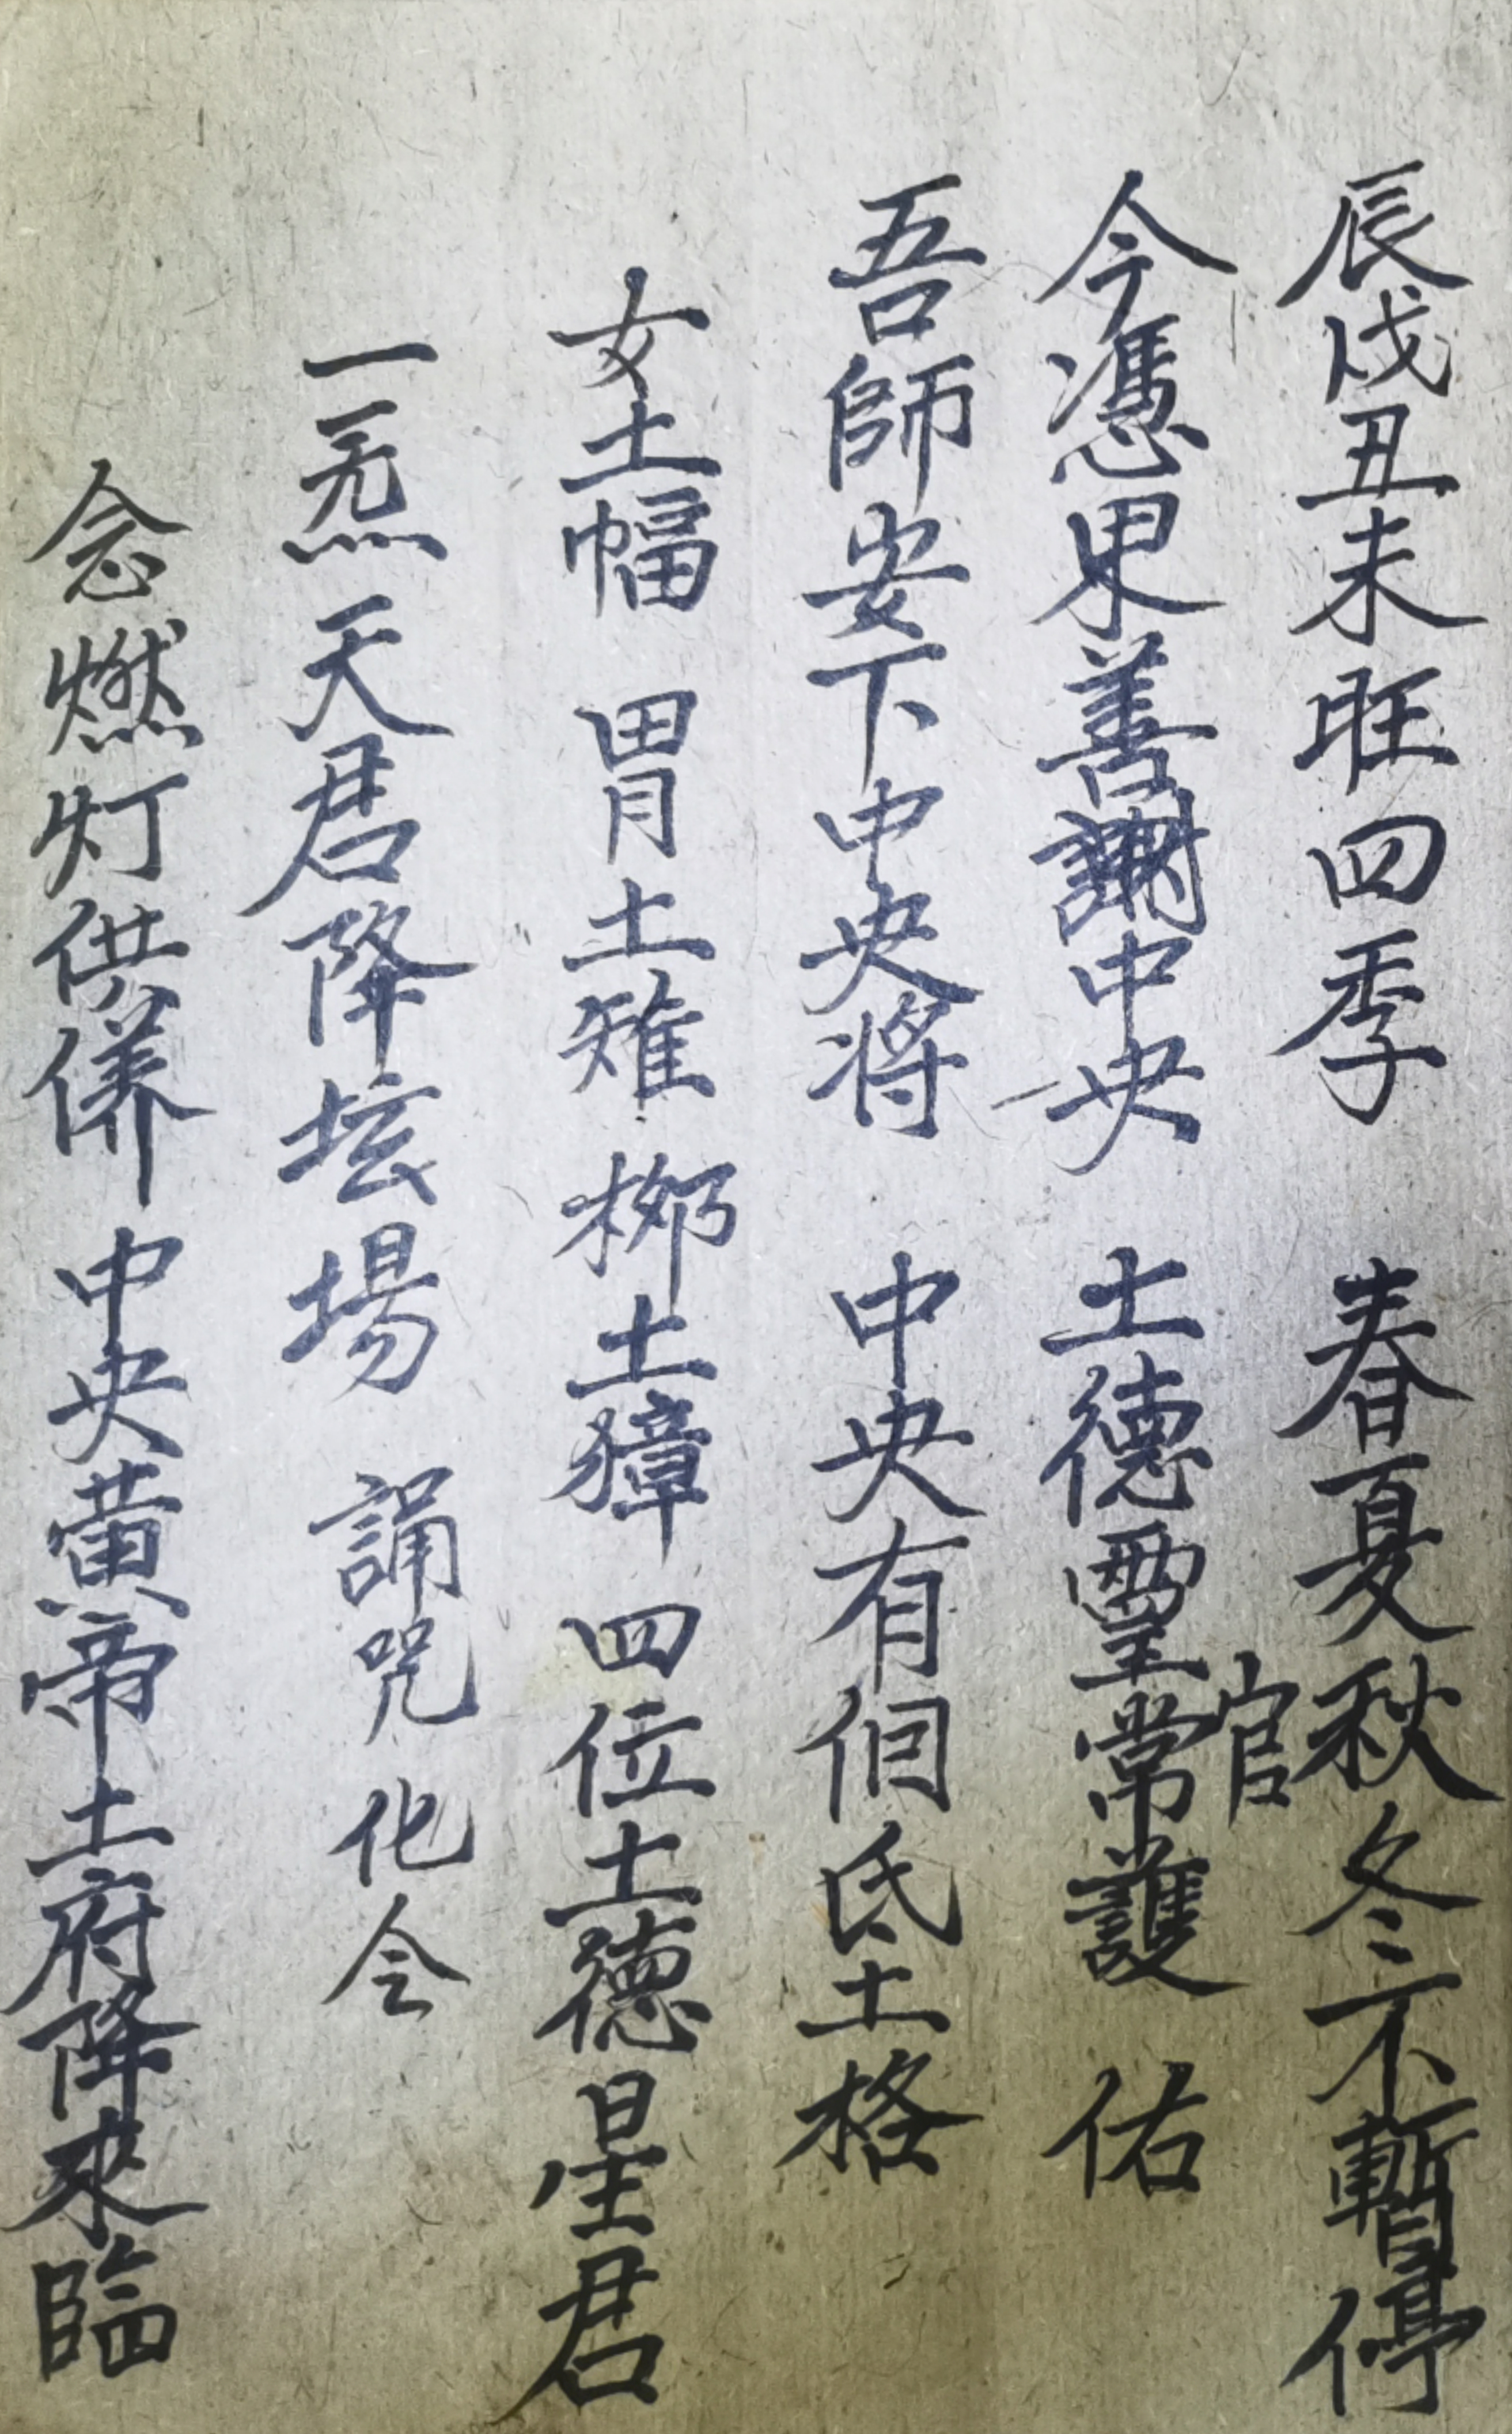 辰戌丑未旺四季 春夏秋冬不暫停
今憑果善謝中央 土德靈官常護佑
吾師安下中央將 中央有個氐土格
女土幅 胃土雉 柳土獐 四位土德星君
一炁天君降坛場 誦咒化令
念燃灯供儀 中央黃帝土府降來臨